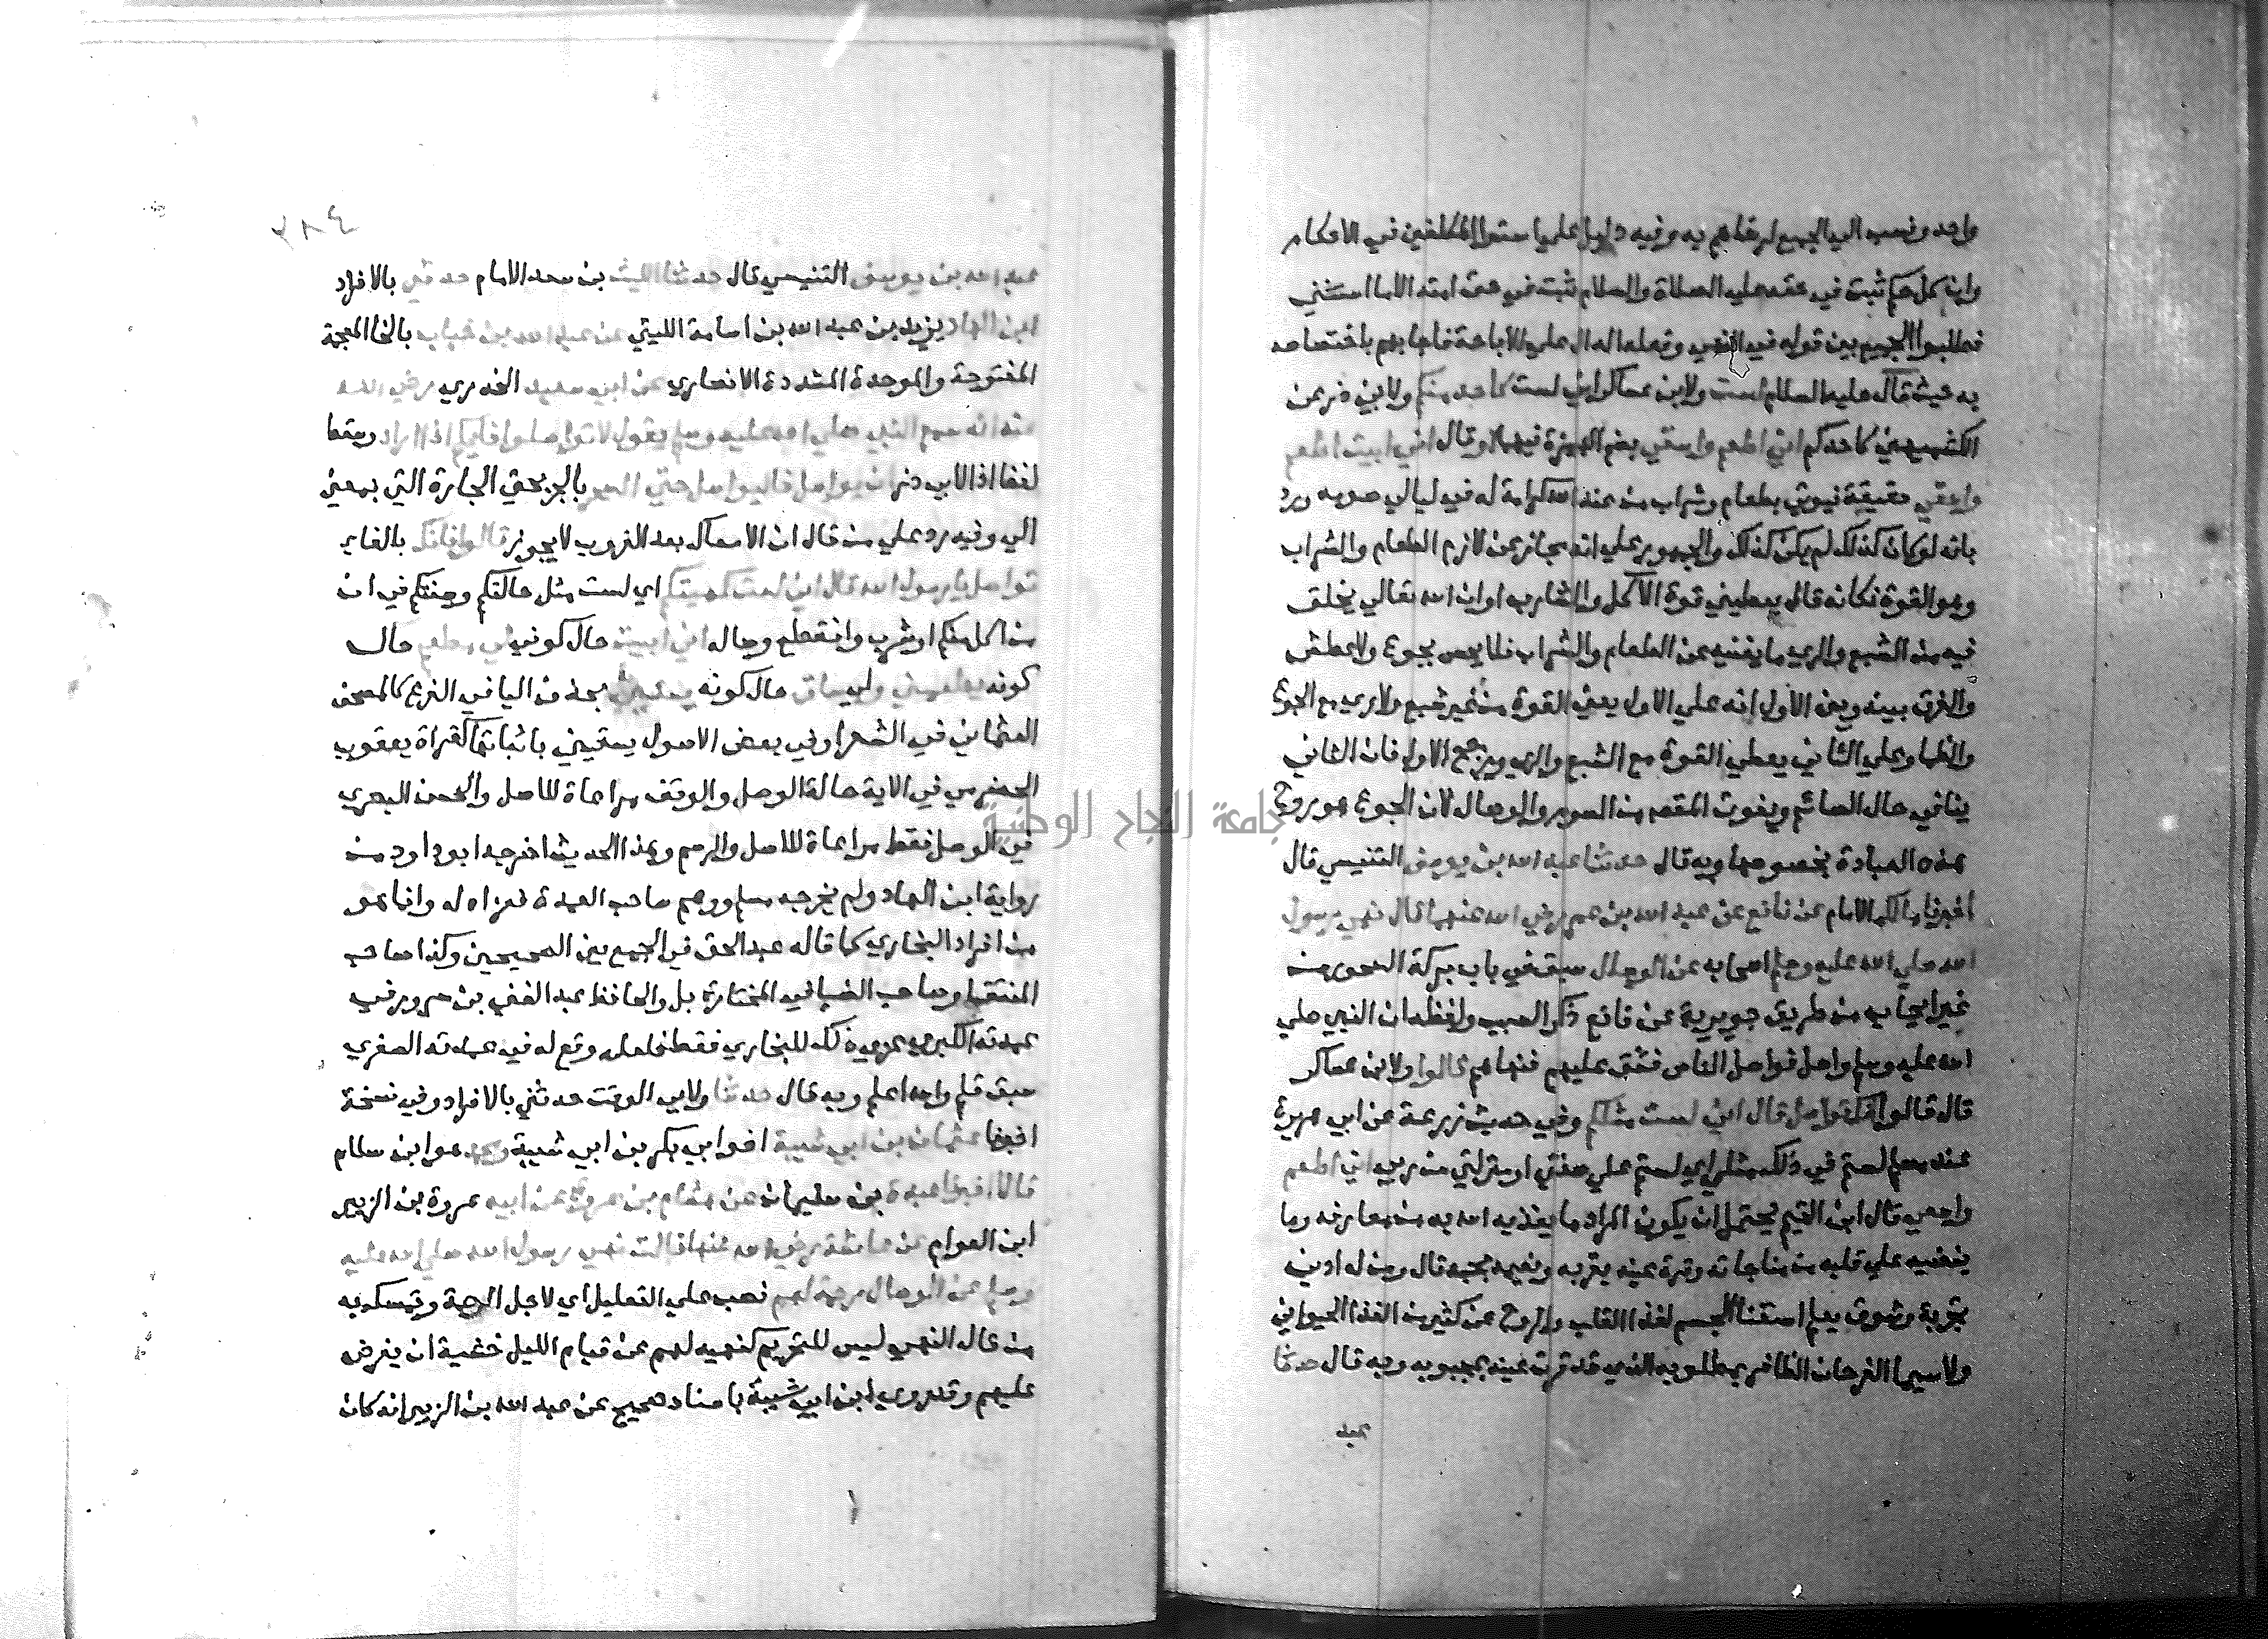 واحد ونسب الي الجميع لرضاهم به وفيه دليل علي استوا المكلفين في الاحكام
وان كل حكم ثبت في حقه عليه الصلاة والسلام ثبت في حق امته الا ما استثني
فطلبوا الجمع بين قوله في النهي وفعله الدال علي الاباحة فاجابهم باختصاصه
به حيث قال عليه السلام لست ولابن عساكر اني لست كاحد منكم ولابي ذر عن
الكشميهني كاحدكم اني اطعم واسقي بضم الهمزة فيهما وقال اني ابيت اطعم
واسقي حقيقة فيوتي بطعام وشراب من عند الله كرامة له في ليالي صومه ورد
بانه لو كان كذلك لم يكن كذلك والجمهور علي انه مجاز عن لازم الطعام والشراب
وهو القوة فكانه قال يعطيني قوة الاكل والشارب او ان الله تعالي يخلق
فيه من الشبع والري ما يغنيه عن الطعام والشراب فلا يحس بجوع ولا عطش
والفرق بينه وبين الاول انه علي الاول يعطي القوة من غير شبع ولا ري مع الجوع
والظما وعلي الثاني يعطي القوة مع الشبع والري ويرجح الاول فان الثاني
ينافي حال الصائم ويفوت المقصد من الصوم والوصال لان الجوع هو روح
هذه العبادة بخصوصها وبه قال حدثنا عبد الله بن يوسف التنيسي قال
اخبرنا مالك الامام عن نافع عن عبد الله بن عمر رضي الله عنهما قال نهي رسول
الله صلي الله عليه وسلم اصحابه عن الوصال سبق في باب بركة السحور من
غير ايجاب من طريق جويرية عن نافع ذكر السبب ولفظه ان النبي صلي
الله عليه وسلم واصل فواصل الناس فشق عليهم فنهاهم قالوا ولابن عساكر
قال قالوا انك تواصل قال اني لست مثلكم وفي حديث زرعة عن ابي هريرة
عند مسلم لستم في ذلك مثلي اي لستم علي صفتي او منزلتي من ربي اني اطعم
واسقي قال ابن القيم يحتمل ان يكون المراد ما يغذيه الله به من معارفه وما
يفيضه علي قلبه من مناجاته وقرة عينه بقربه ونعيمه بحبه قال ومن له ادني
تجربة وشوق يعلم استغنا الجسم لغذا القلب والروح عن كثير من الغذا الحيواني
ولاسيما الفرحان الظافر بمطلوبه الذي قد قرت عينه بمحبوبه وبه قال حدثنا
عبد
عبد الله بن يوسف التنيسي قال حدثنا الليث بن سعد الامام حدثني بالافراد
ابن الهاد يزيد بن عبد الله بن اسامة الليثي عن عبد الله بن خباب بالخا المعجمة
المفتوحة والموحدة المشددة الانصاري عن ابي سعيد الخدري رضي الله
عنه انه سمع النبي صلي الله عليه وسلم يقول لا تواصلوا فايكم اذا اراد وسقط
لفظ اذا لابي ذر ان يواصل فليواصل حتي السحر بالجر بحتي الجارة التي بمعني
الي وفيه رد علي من قال ان الامساك بعد الغروب لا يجوز قالوا فانك بالفا
تواصل يا رسول الله قال اني لست كهيئتكم اي لست مثل حالتكم وصفتكم في ان
من اكل منكم او شرب وانقطع وصاله اني ابيت حال كوني لي مطعم حال
كونه يطعمني ولي ساق حال كونه يسقين بحذف اليا في الفرع كالمصحف
العثماني في الشعرا وفي بعض الاصول يسقيني باثباتها كقراة يعقوب
الحضرمي في الاية حالة الوصل والوقف مراعاة للاصل والحسن البصري
في الوصل فقط مراعاة للاصل والرسم وهذا الحديث اخرجه ابو داود من
رواية ابن الهاد ولم يخرجه مسلم ووهم صاحب العمدة فعزاه له وانما هو
من افراد البخاري كما قاله عبد الحق في الجمع بين الصحيحين وكذا صاحب
المنتقي وصاحب الضيا في المختارة بل والحافظ عبد الغني بن سرور في
عمدته الكبري عزي ذلك للبخاري فقط فلعله وقع له في عمدته الصغري
سبق قلم والله اعلم وبه قال حدثنا ولابي الوقت حدثني بالافراد وفي نسخة
اخبرنا عثمان بن ابي شيبة اخو ابي بكر بن ابي شيبة ومحمد هو ابن سلام
قالا اخبرنا عبدة بن سليمان عن هشام بن عروة عن ابيه عروة بن الزبير
ابن العوام عن عائشة رضي الله عنها قالت نهي رسول الله صلي الله عليه
وسلم عن الوصال رحمة لهم نصب علي التعليل اي لاجل الرحمة وتمسك به
من قال النهي ليس للتحريم كنهيه لهم عن قيام الليل خشية ان يفرض
عليهم وقد روي ابن ابي شيبة باسناد صحيح عن عبد الله بن الزبير انه كان
جامعة النجاح الوطنية